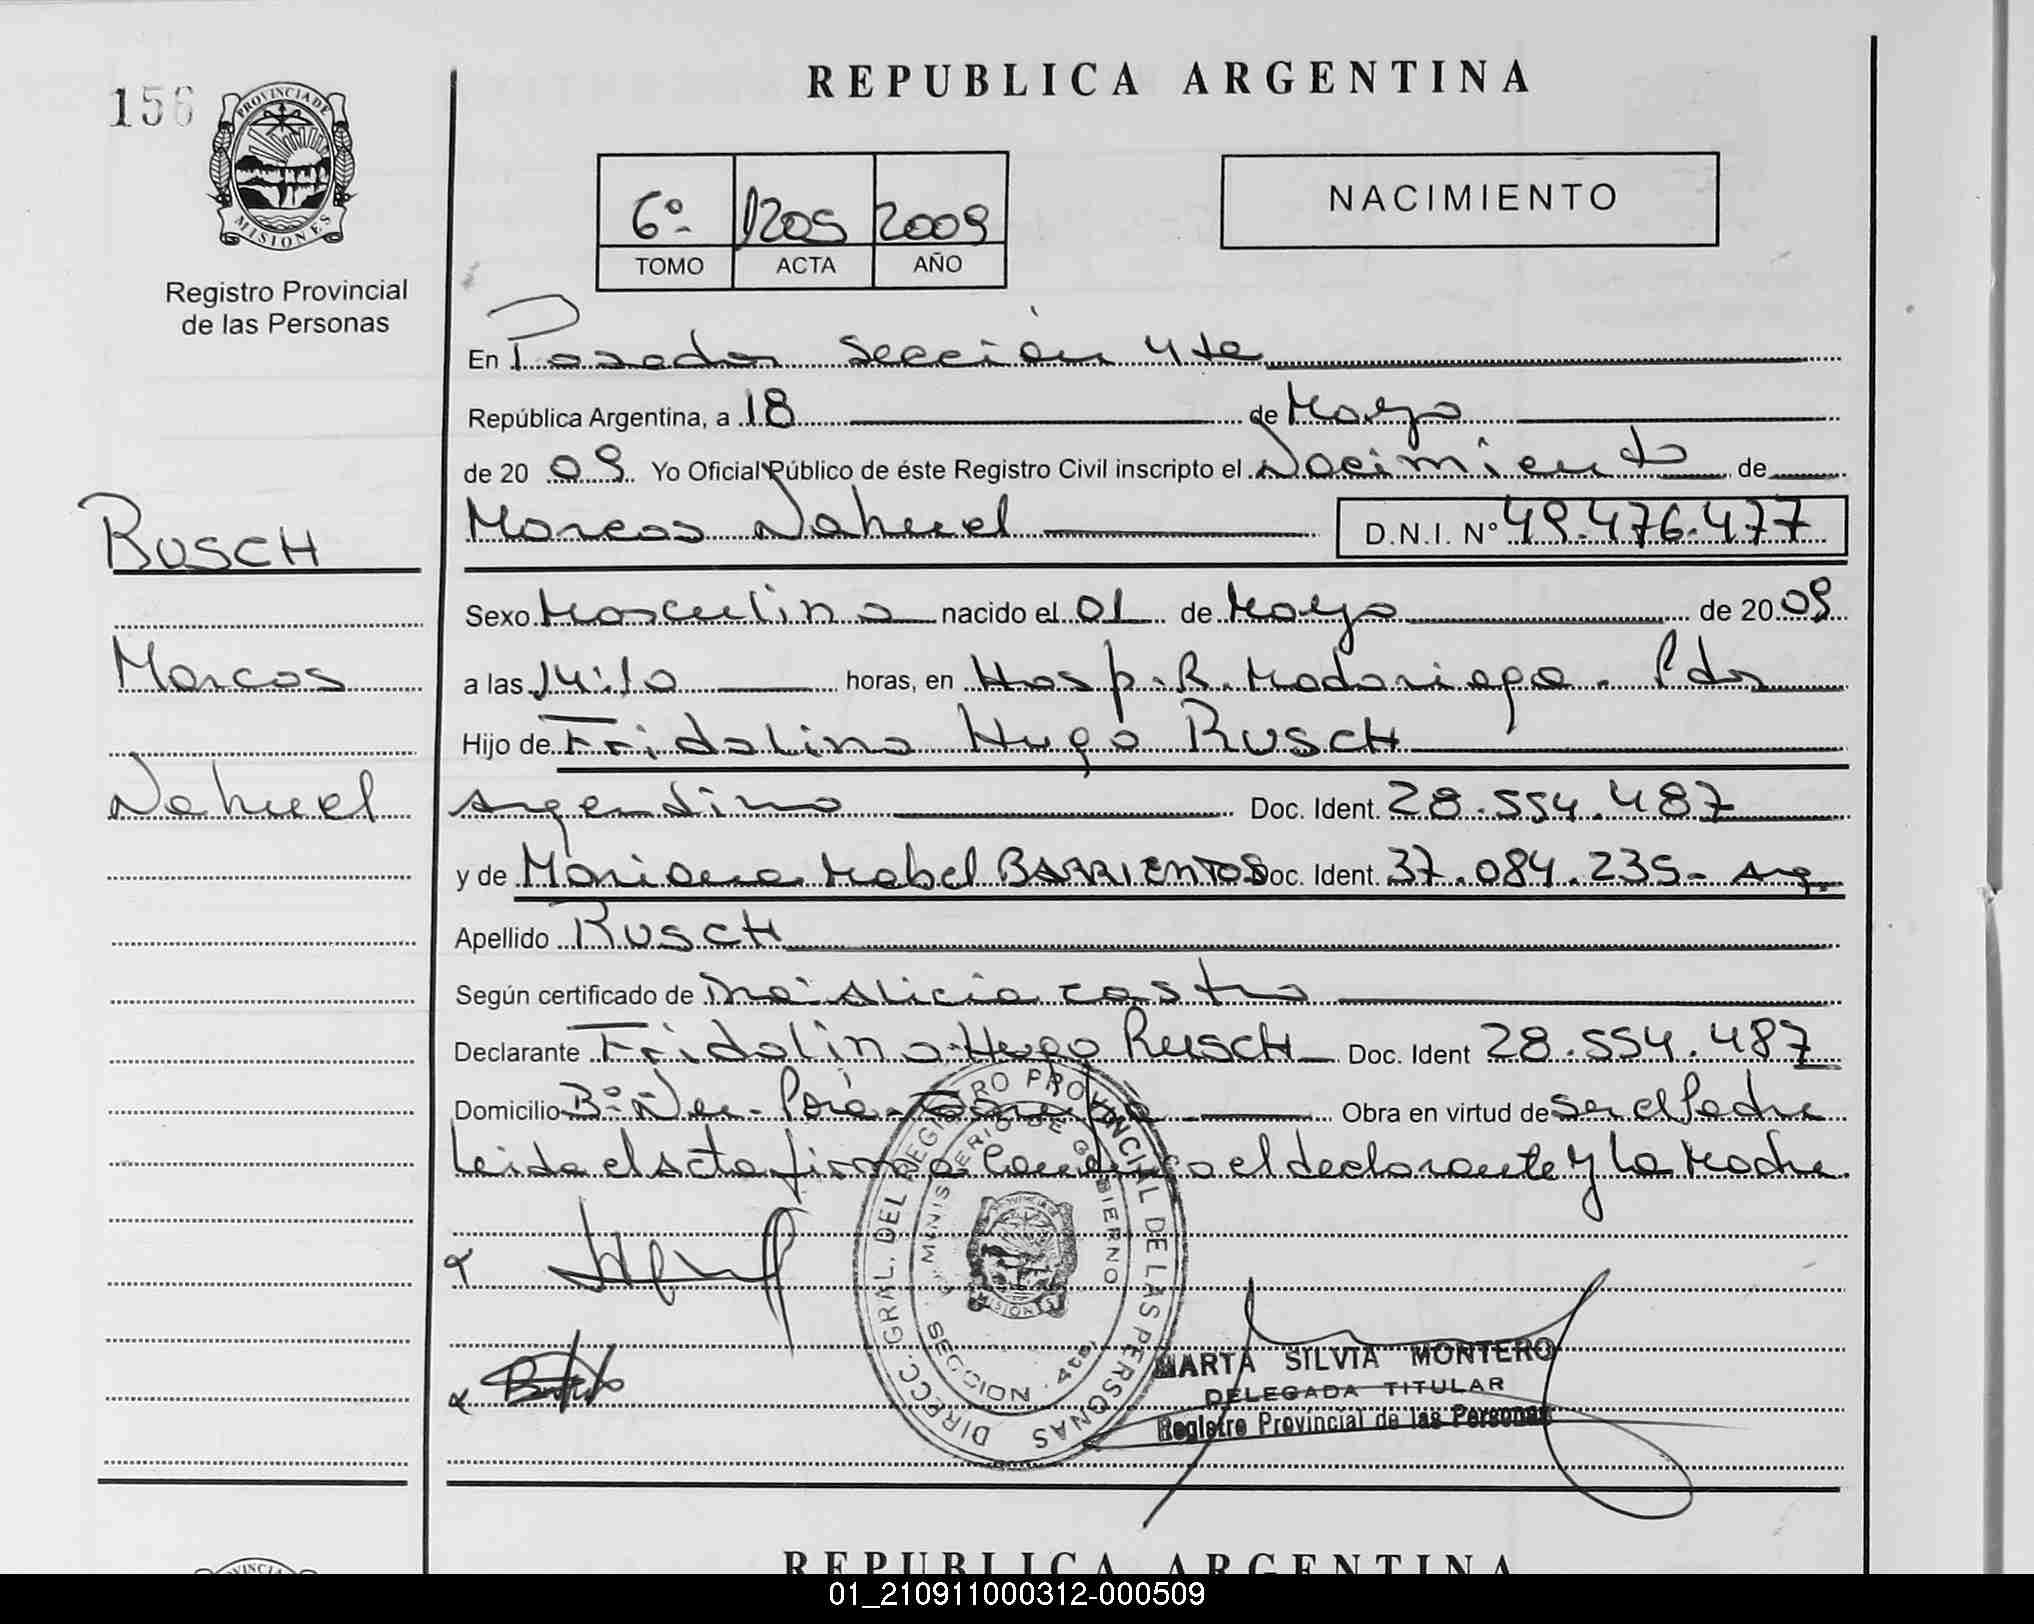 REPUBLICA ARGENTINA
156
PROVINCIA DE
MISIONES
Registro Provincial
de las Personas
6º 1205 2009
TOMO ACTA AÑO
NACIMIENTO
En Posadas Sección 4ta
República Argentina, a 18 de Mayo
de 20 09 Yo Oficial Público de éste Registro Civil inscripto el Nacimiento de
Marcos Nahuel D.N.I. Nº 49.476.477
BUSCH
Marcos
Nahuel
Sexo Masculino nacido el 01 de Mayo de 20 09
a las 14:10 horas, en Hosp. R. Madariaga. Pdas
Hijo de Fridolino Hugo BUSCH
Argentino Doc. Ident. 28.554.487
y de Mariana Mabel BARRIENTOS Doc. Ident. 37.084.235- Arg.
Apellido BUSCH
Según certificado de Dra. Alicia Castro
Declarante Fridolino Hugo BUSCH Doc. Ident 28.554.487
Domicilio Bº Ñu Porá Obra en virtud de Ser el Padre
Leida el acta firma Conmigo el declarante y la Madre.
DIRECC. GRAL. DEL REGISTRO PROVINCIAL DE LAS PERSONAS
MINISTERIO DE GOBIERNO
SECCION 4ta.
MISIONES
MARTA SILVIA MONTERO
DELEGADA TITULAR
Registro Provincial de las Personas
REPUBLICA ARGENTINA
01_210911000312-000509